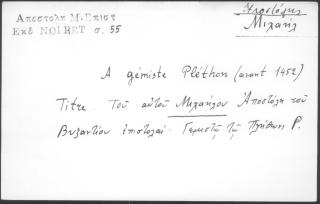 Αποστολη Μ. Επιστ
Εκδ NOIRET σ. 55
Ἀποστόλης
Μιχαήλ
A gémiste Pléthon (avant 1452)
Titre. Τοῦ αὐτοῦ Μιχαήλου Ἀποστόλη τοῦ
Βυζαντίου ἐπιστολαί. Γεμιστῷ τῷ Πλήθωνι P.